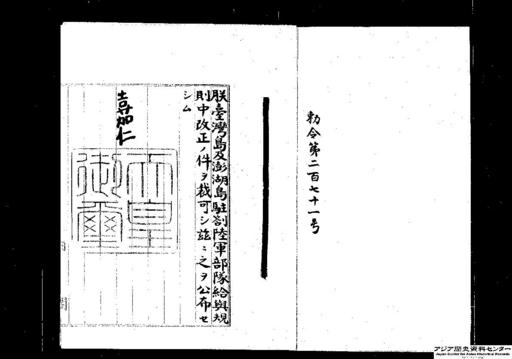 勅令第二百七十一号
朕臺灣島及澎湖島駐劄陸軍部隊給與規
則中改正ノ件ヲ裁可シ茲ニ之ヲ公布セ
シム
嘉仁
天皇
御璽
アジア歴史資料センター
Japan Center for Asian Historical Records